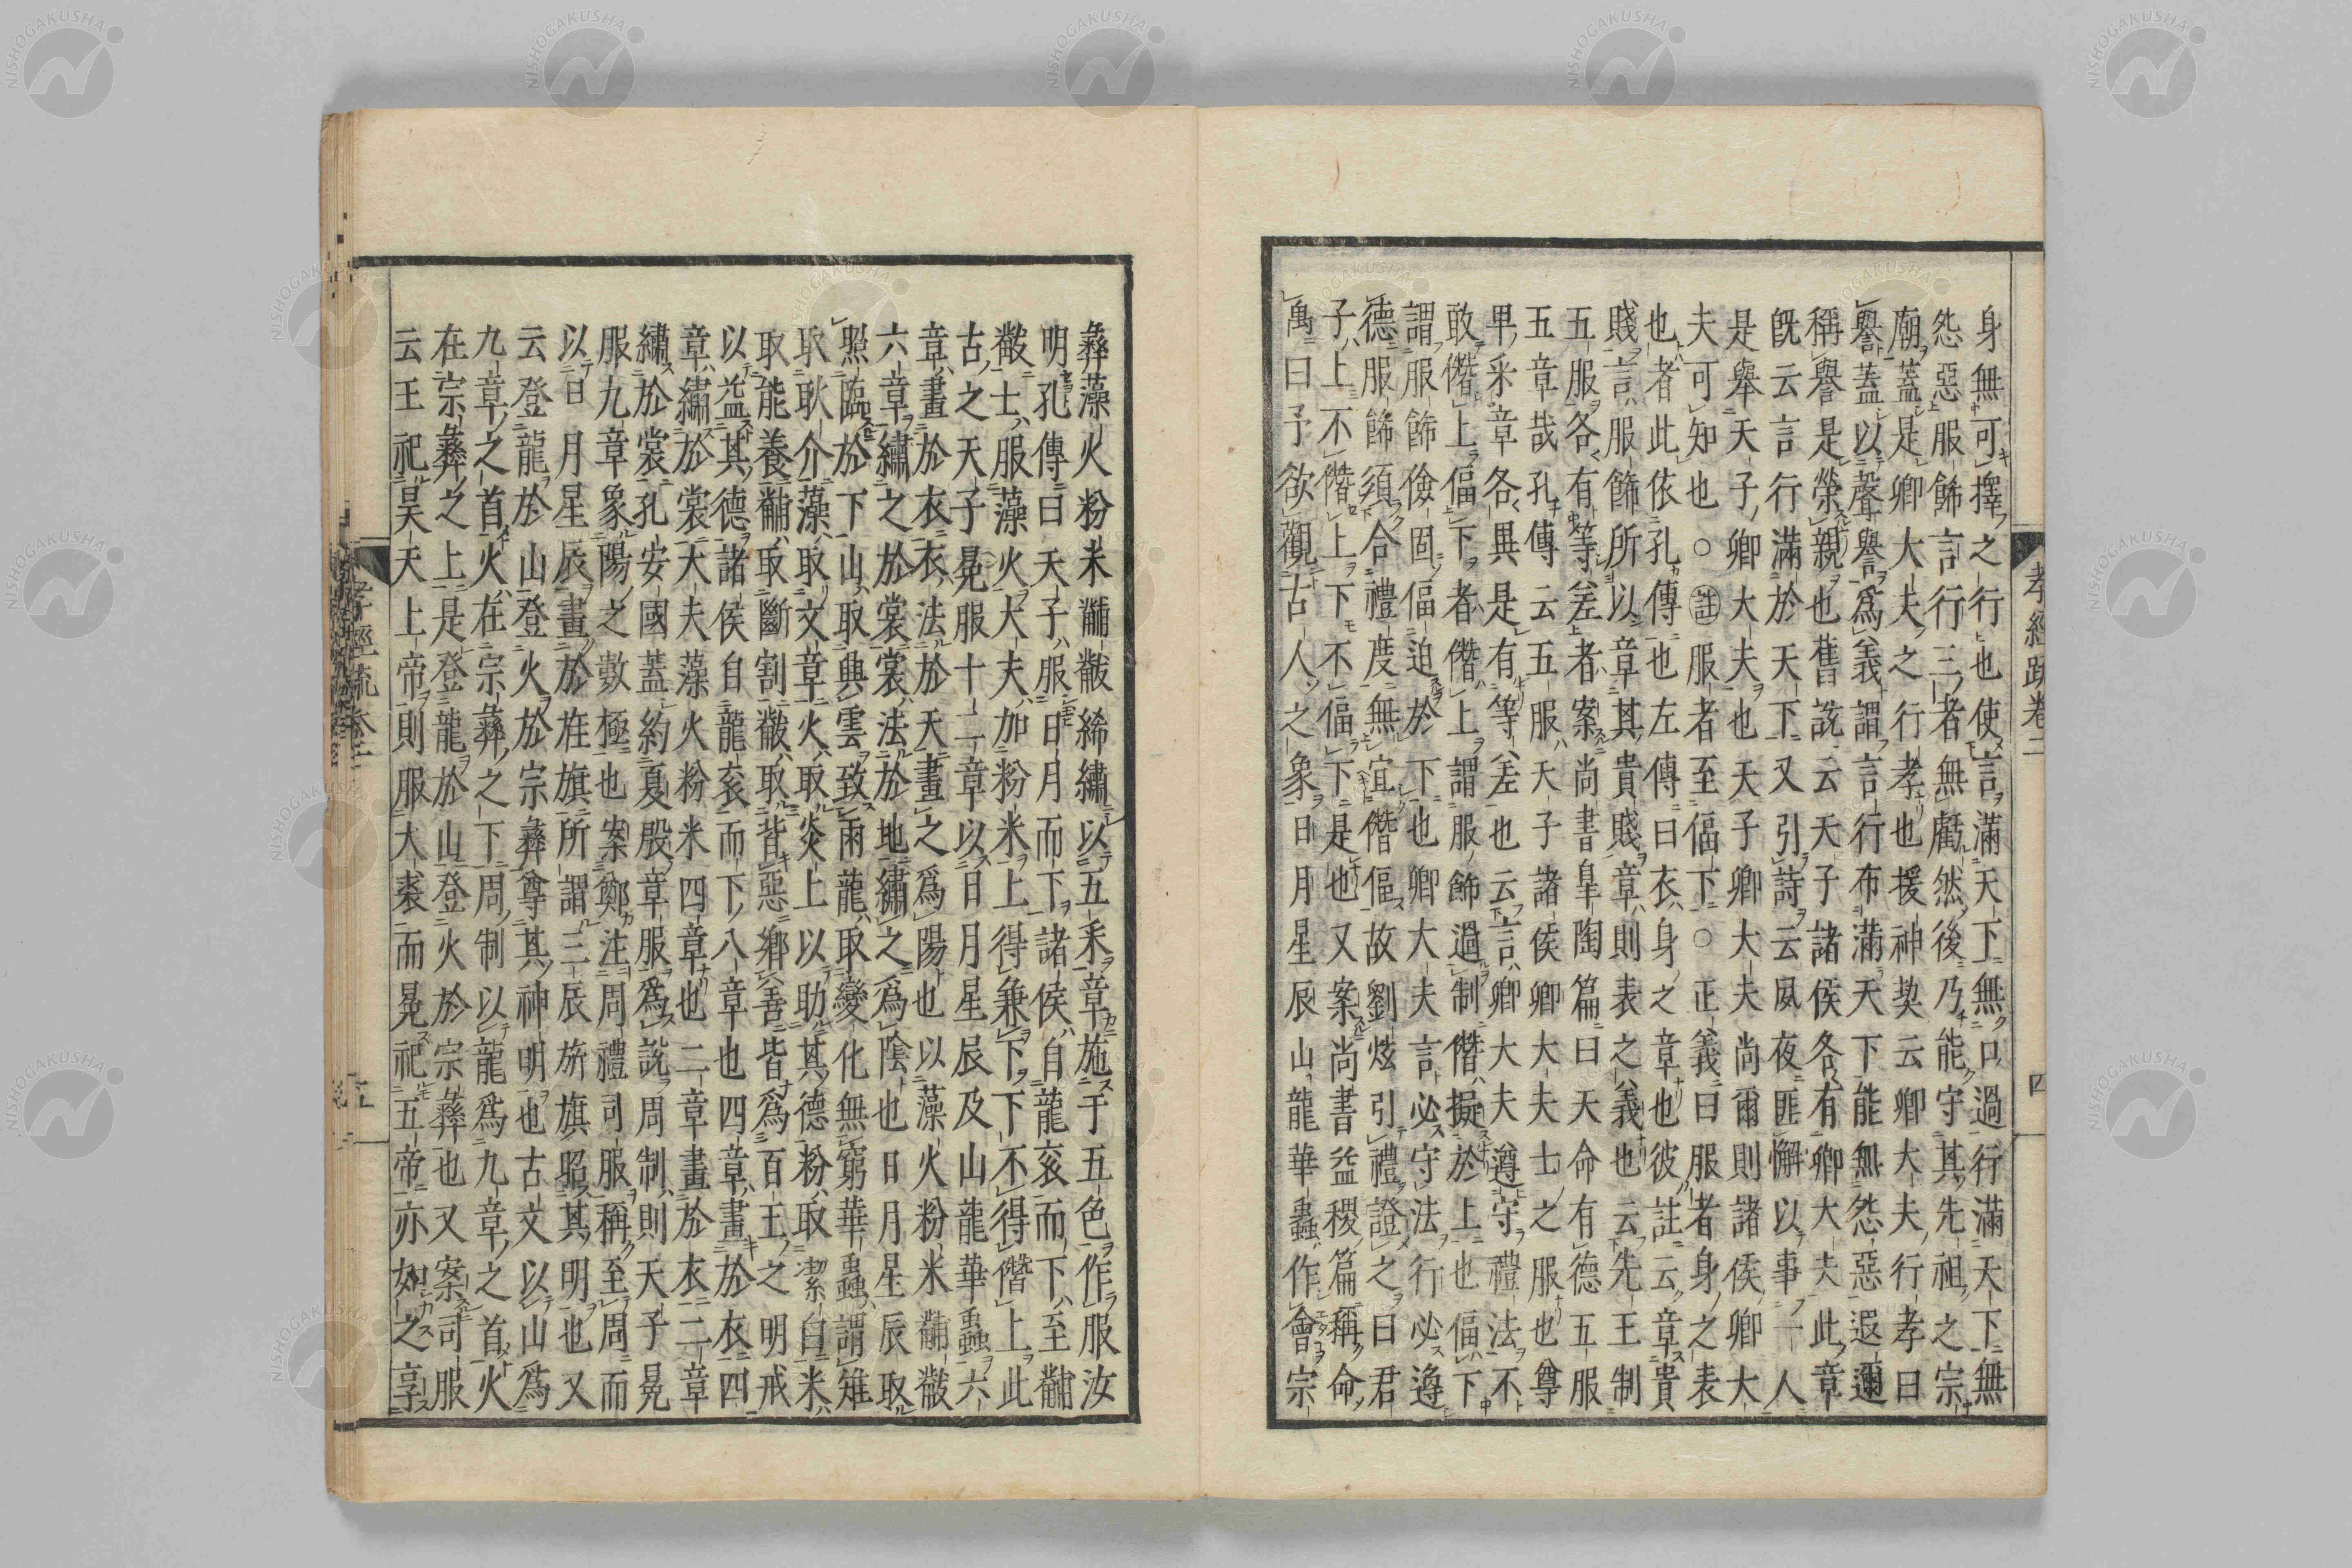 孝經疏卷二 四
身無可擇之行也使言滿天下無口過行滿天下無
怨惡服飾言行三者無虧然後乃能守其先祖之宗
廟蓋是卿大夫之行孝也援神契云卿大夫行孝曰
譽蓋以聲譽爲義謂言行布滿天下能無怨惡遐邇
稱譽是榮親也舊說云天子諸侯各有卿大夫此章
旣云言行滿於天下又引詩云夙夜匪懈以事一人
是舉天子卿大夫也天子卿大夫尚爾則諸侯卿大
夫可知也○註服者至偪下○正義曰服者身之表
也者此依孔傳也左傳曰衣身之章也彼註云章貴
賤言服飾所以章其貴賤章則表之義也云先王制
五服各有等差者案尚書臯陶篇曰天命有德五服
五章哉孔傳云五服天子諸侯卿大夫士之服也尊
卑采章各異是有等差也云言卿大夫遵守禮法不
敢僭上偪下者僭上謂服飾過制僭擬於上也偪下
謂服飾儉固偪迫於下也卿大夫言必守法行必遵
德服飾須合禮度無宜僭偪故劉炫引禮證之曰君
子上不僭上下不偪下是也又案尚書益稷篇稱命
禹曰予欲觀古人之象日月星辰山龍華蟲作會宗
彝藻火粉米黼黻絺繡以五采章施于五色作服汝
明孔傳曰天子服日月而下諸侯自龍衮而下至黼
黻士服藻火大夫加粉米上得兼下下不得僭上此
古之天子冕服十二章以日月星辰及山龍華蟲六
章畫於衣衣法於天畫之爲陽也以藻火粉米黼黻
六章繡之於裳裳法於地繡之爲陰也日月星辰取
照臨於下山取興雲致雨龍取變化無窮華蟲謂雉
取耿介藻取文章火取炎上以助其德粉取潔白米
取能養黼取斷割黻取背惡鄉善皆爲百王之明戒
以益其德諸侯自龍衮而下八章也四章畫於衣四
章繡於裳大夫藻火粉米四章也二章畫於衣二章
繡於裳孔安國蓋約夏殷章服爲說周制則天子冕
服九章象陽之數極也案鄭注周禮司服稱至周而
以日月星辰畫於旌旗所謂三辰旂旗昭其明也又
云登龍於山登火於宗彝尊其神明也古文以山爲
九章之首火在宗彝之下周制以龍爲九章之首火
在宗彝之上是登龍於山登火於宗彝也又案司服
云王祀昊天上帝則服大裘而冕祀五帝亦如之享
NISHOGAKUSHA